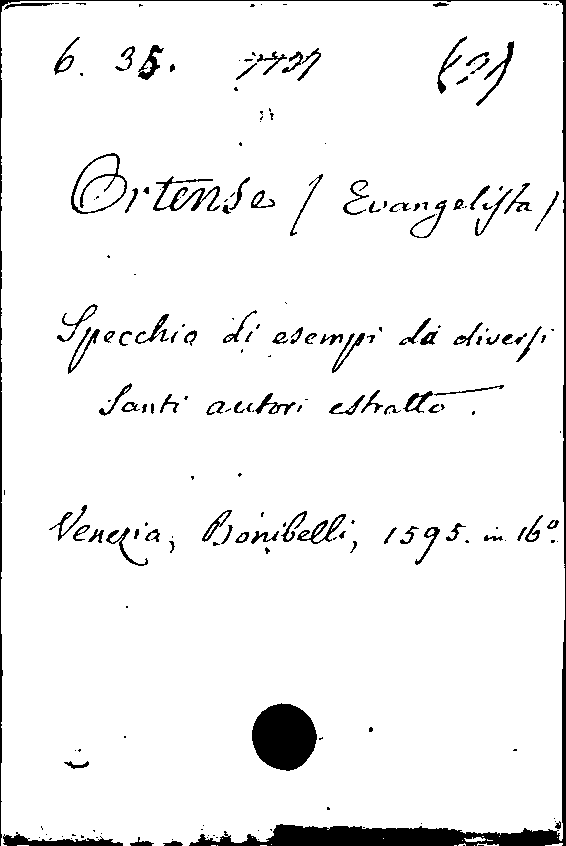 6. 35.
Ortense / Evangelista /
Specchio di esempi da diversi
Santi autori estratto.
Venezia, Bonibelli, 1595. in 16º.